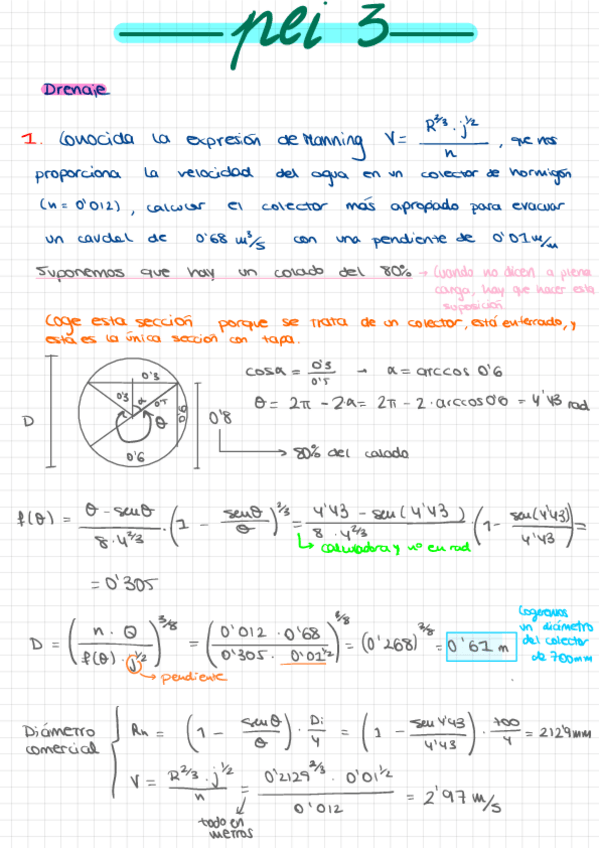 pei 3
Drenaje
1. Conocida la expresión de Manning V = R^2/3 · j^1/2 / n , que nos
proporciona la velocidad del agua en un colector de hormigón
(n = 0'012), calcular el colector más apropiado para evacuar
un caudal de 0'68 m³/s con una pendiente de 0'01 m/m
Suponemos que hay un calado del 80% → Cuando no dicen a plena
carga, hay que hacer esta
suposición
Coge esta sección porque se trata de un colector, está enterrado, y
esta es la única sección con tapa.
D
0'3
0'3
α
0'5
θ
0'6
0'6
0'8
cosα = 0'3 / 0'5 → α = arccos 0'6
θ = 2π - 2α = 2π - 2 · arccos 0'6 = 4'43 rad
80% del calado
f(θ) = θ - senθ / 8 · 4^2/3 · (1 - senθ / θ)^2/3 = 4'43 - sen(4'43) / 8 · 4^2/3 (1 - sen(4'43) / 4'43) =
calculadora y nº en rad
= 0'305
D = (n · Q / f(θ) · j^1/2)^3/8 = (0'012 · 0'68 / 0'305 · 0'01^1/2)^3/8 = (0'268)^3/8 = 0'61 m
pendiente
Cogeremos
un diámetro
del colector
de 700mm
Diámetro
comercial
Rh = (1 - senθ / θ) · Di / 4 = (1 - sen 4'43 / 4'43) · 700 / 4 = 212'9 mm
V = R^2/3 · j^1/2 / n = 0'2129^2/3 · 0'01^1/2 / 0'012 = 2'97 m/s
todo en
metros